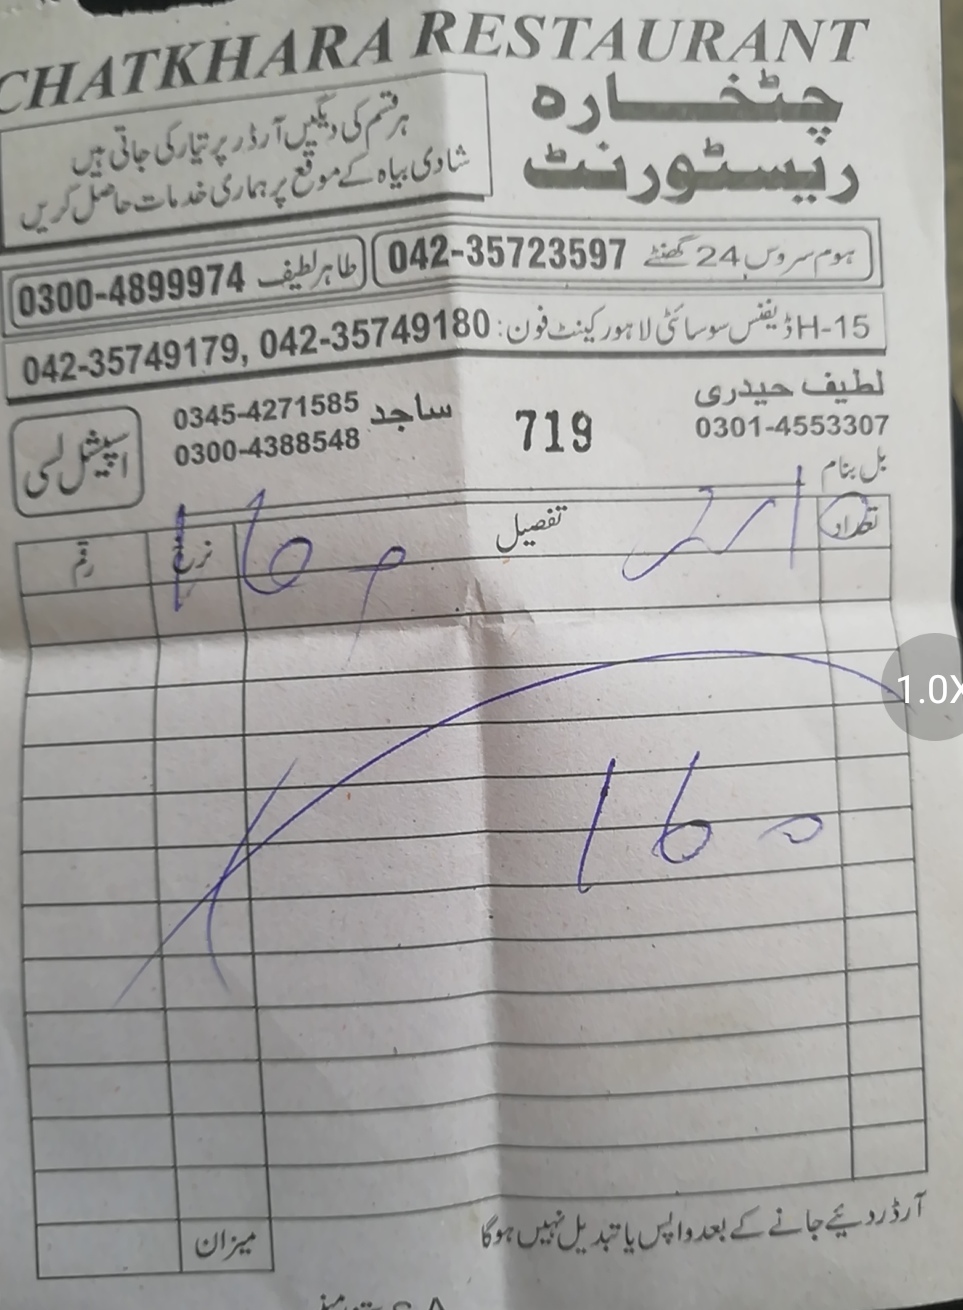 CHATKHARA RESTAURANT
چٹخارہ
ریسٹورنٹ
ہر قسم کی دیگیں آرڈر پر تیار کی جاتی ہیں
شادی بیاہ کے موقع پر ہماری خدمات حاصل کریں
ہوم سروس 24 گھنٹے 042-35723597
طاہر لطیف 0300-4899974
H-15 ڈیفنس سوسائٹی لاہور کینٹ فون: 042-35749179, 042-35749180
لطیف حیدری
0301-4553307
719
ساجد 0345-4271585
0300-4388548
اسپیشل لسی
بل بنام
تعداد تفصیل نرخ رقم
160
میزان
آرڈر دیئے جانے کے بعد واپس یا تبدیل نہیں ہوگا
1.0X